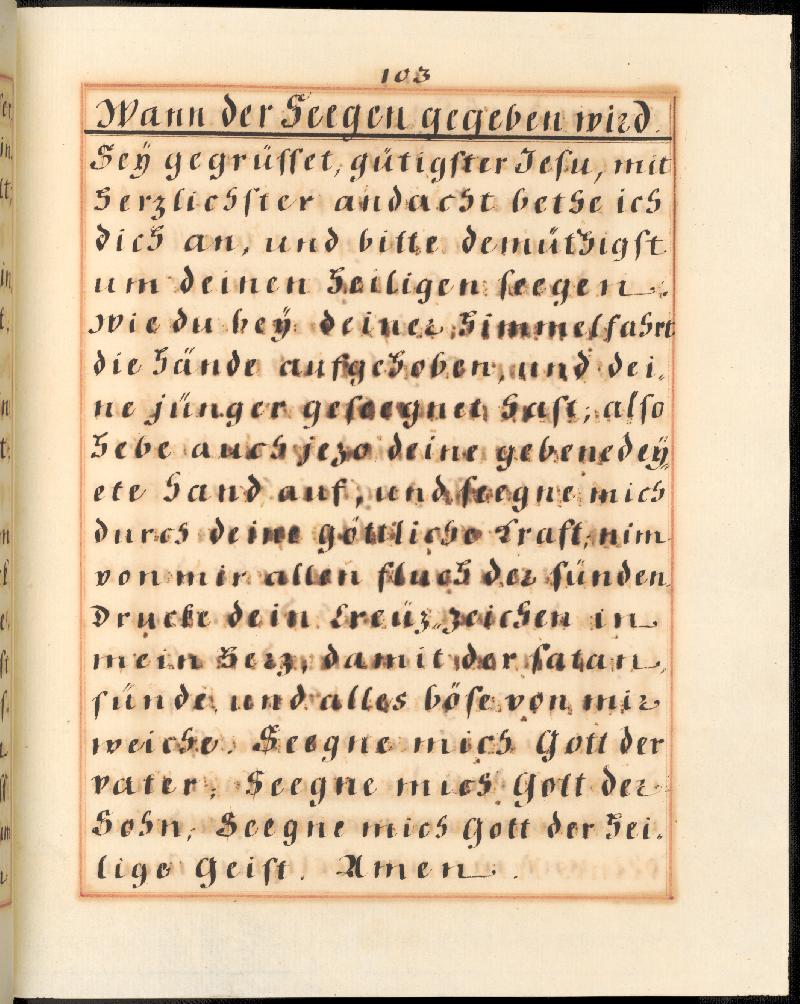 103
Wann der Seegen gegeben wird.
Seÿ gegrüſſet, gütigſter Jeſu, mit
herzlichſter andacht bethe ich
dich an, und bitte demüthigſt
um deinen heiligen ſeegen.
Wie du beÿ deiner himmelfahrt
die hände aufgehoben, und dei,
ne jünger geſeegnet haſt, alſo
hebe auch jezo deine gebenedeÿ
ete hand auf, und ſeegne mich
durch deine göttliche kraft, nim
von mir allen fluch der ſünden
Drucke dein kreüz,zeichen in
mein herz, damit der ſatan,
ſünde, und alles böſe von mir
weiche. Seegne mich Gott der
vater, Seegne mich Gott der
Sohn, Seegne mich Gott der hei,
lige Geiſt. Amen.